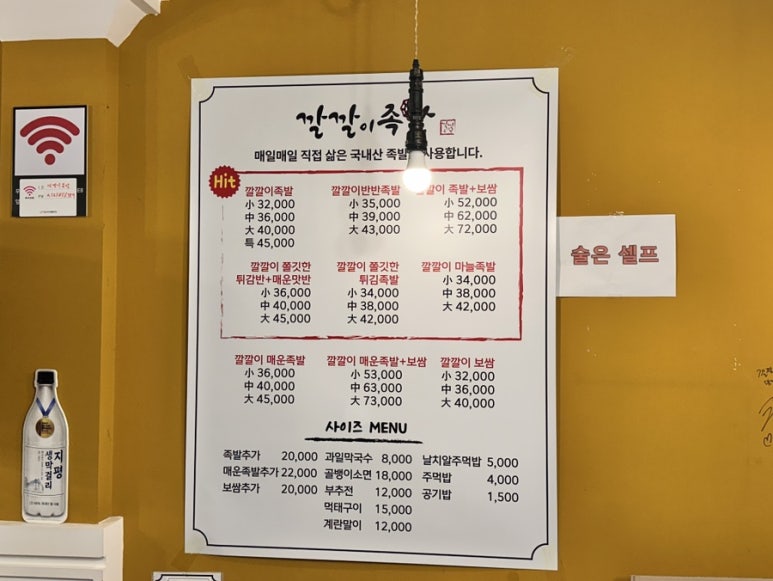 깔깔이족발
매일매일 직접 삶은 국내산 족발 사용합니다.
Hit
깔깔이족발
小 32,000
中 36,000
大 40,000
특 45,000
깔깔이반반족발
小 35,000
中 39,000
大 43,000
깔깔이 족발+보쌈
小 52,000
中 62,000
大 72,000
깔깔이 쫄깃한
튀감반+매운맛반
小 36,000
中 40,000
大 45,000
깔깔이 쫄깃한
튀김족발
小 34,000
中 38,000
大 42,000
깔깔이 마늘족발
小 34,000
中 38,000
大 42,000
깔깔이 매운족발
小 36,000
中 40,000
大 45,000
깔깔이 매운족발+보쌈
小 53,000
中 63,000
大 73,000
깔깔이 보쌈
小 32,000
中 36,000
大 40,000
사이즈 MENU
족발추가 20,000
매운족발추가 22,000
보쌈추가 20,000
과일막국수 8,000
골뱅이소면 18,000
부추전 12,000
먹태구이 15,000
계란말이 12,000
날치알주먹밥 5,000
주먹밥 4,000
공기밥 1,500
술은 셀프
지평
생막걸리